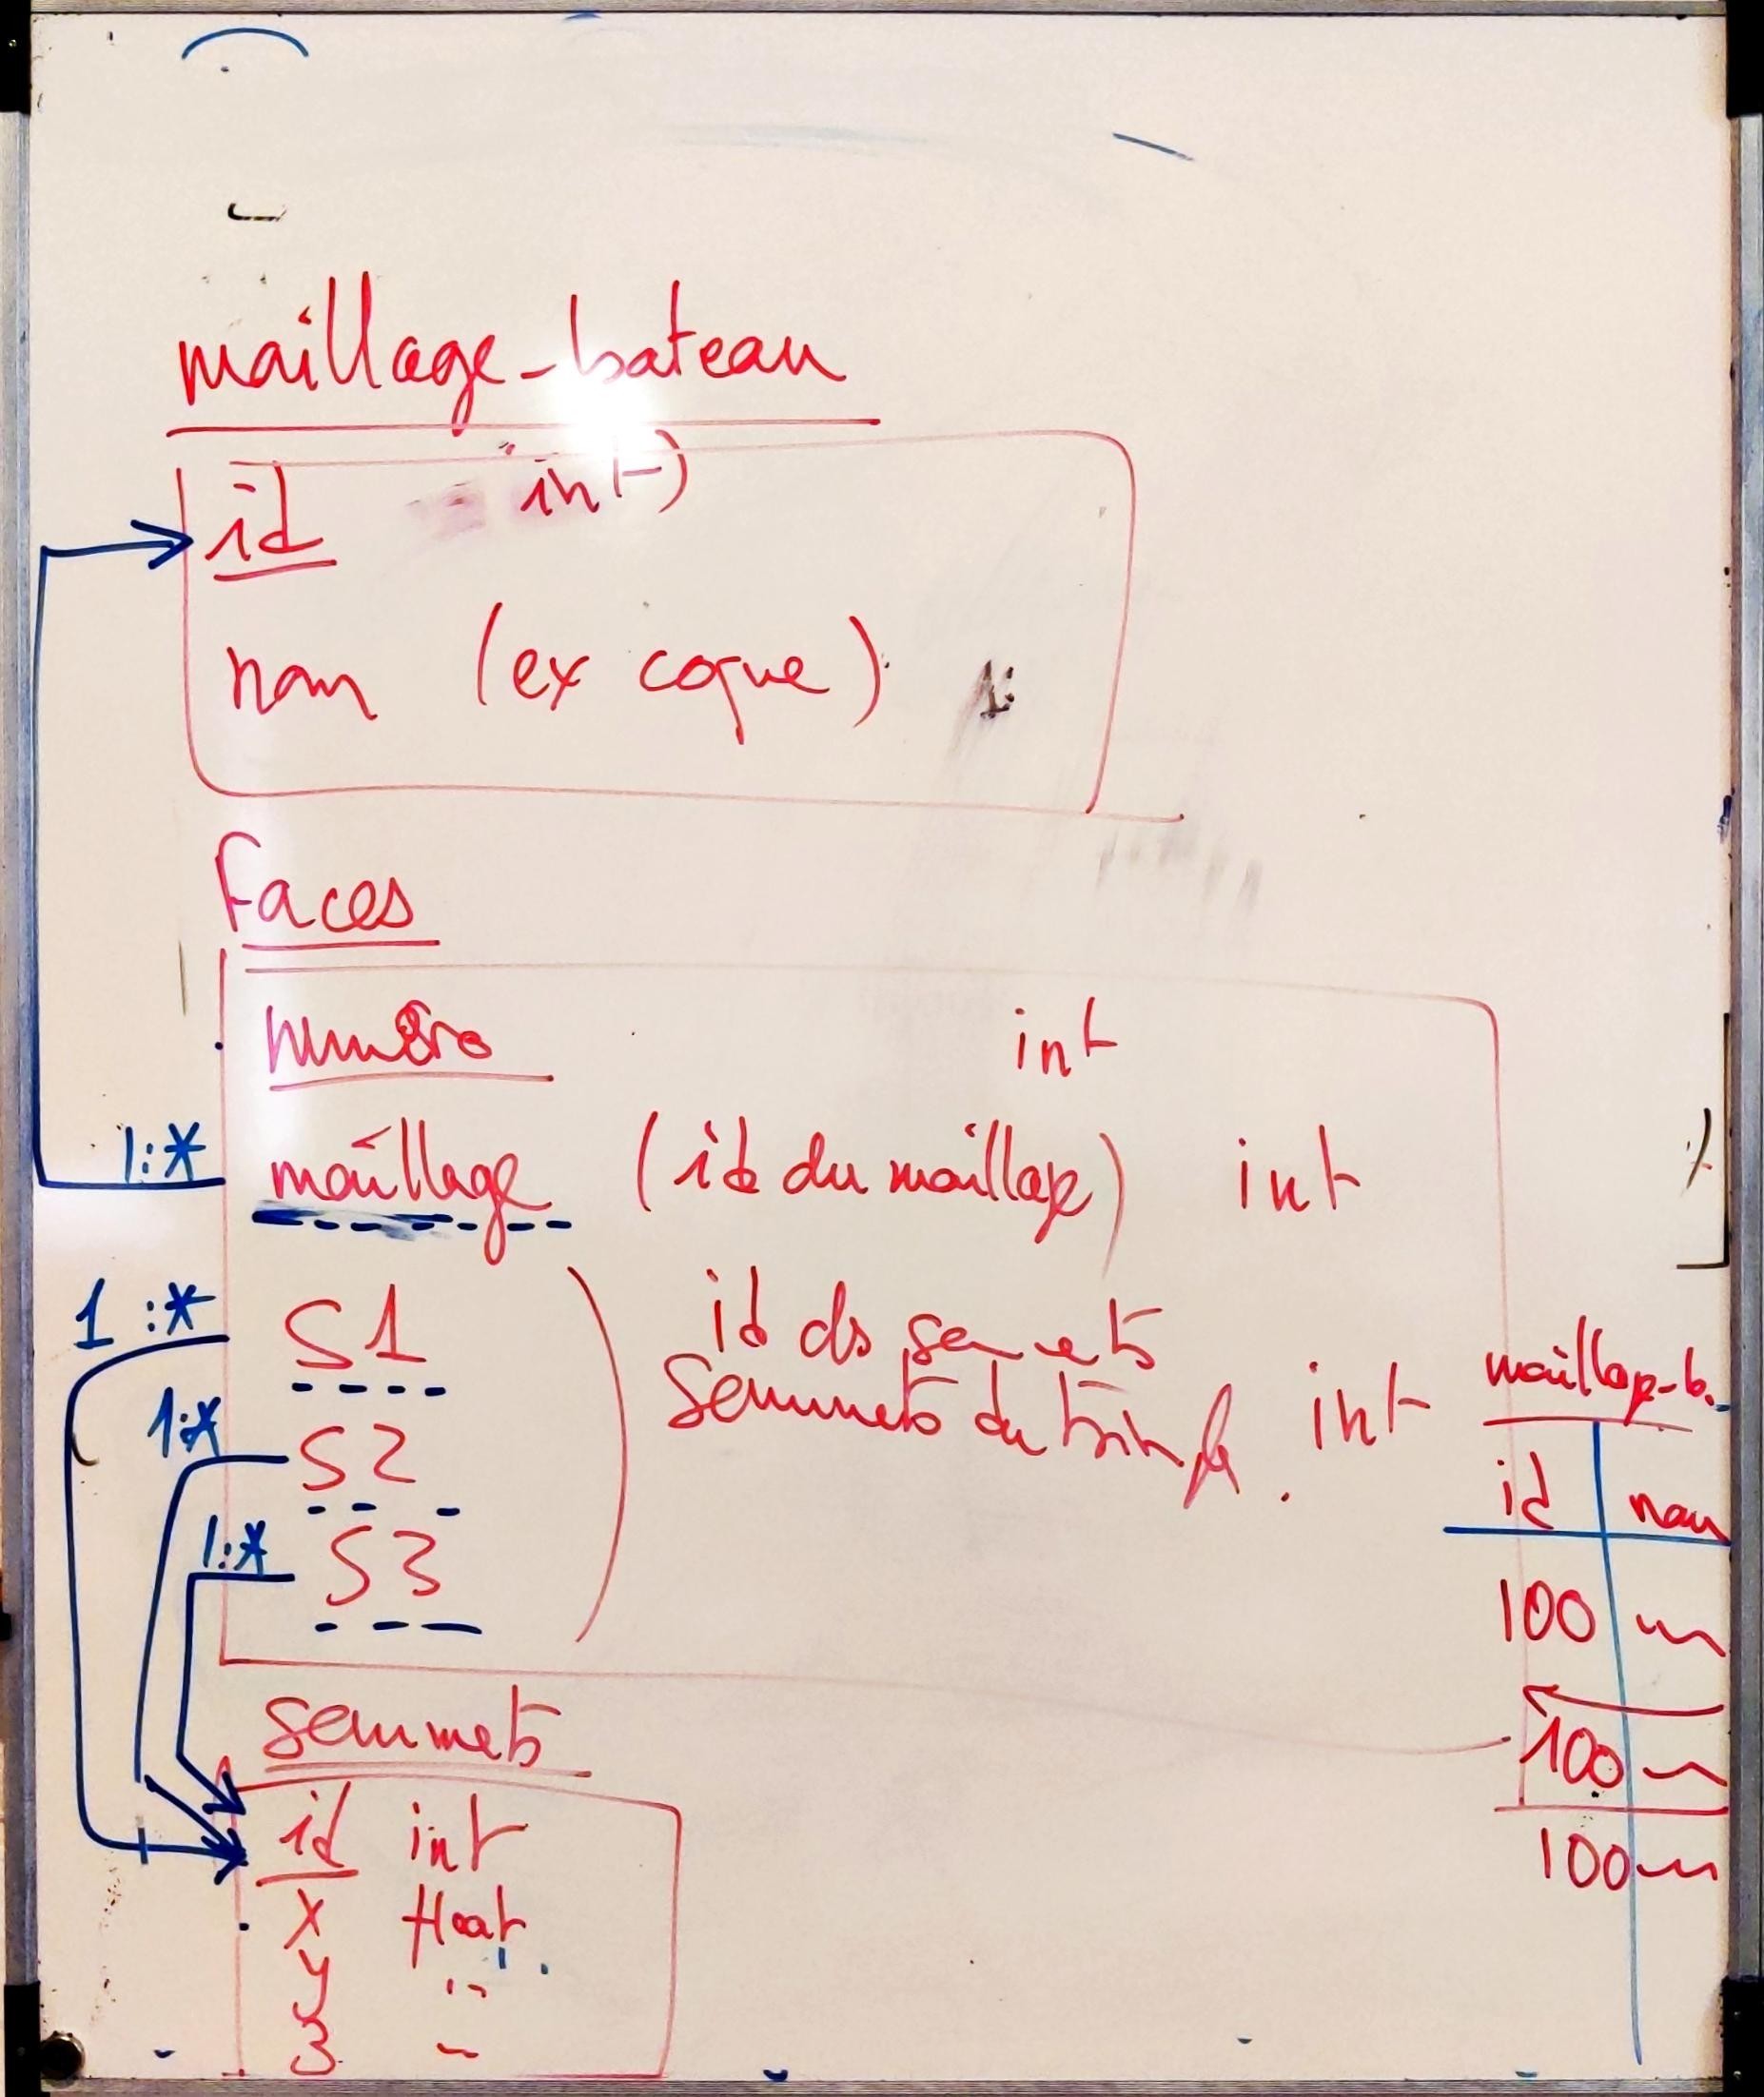 maillage-bateau
id int
nom (ex coque)
Faces
numéro int
1:* maillage (id du maillage) int
1 :* S1 id ds sommets
sommets du triangle. int
1:* S2
1:* S3
sommets
id int
X float
y "
z "
maillage-b.
id nom
100
100
100